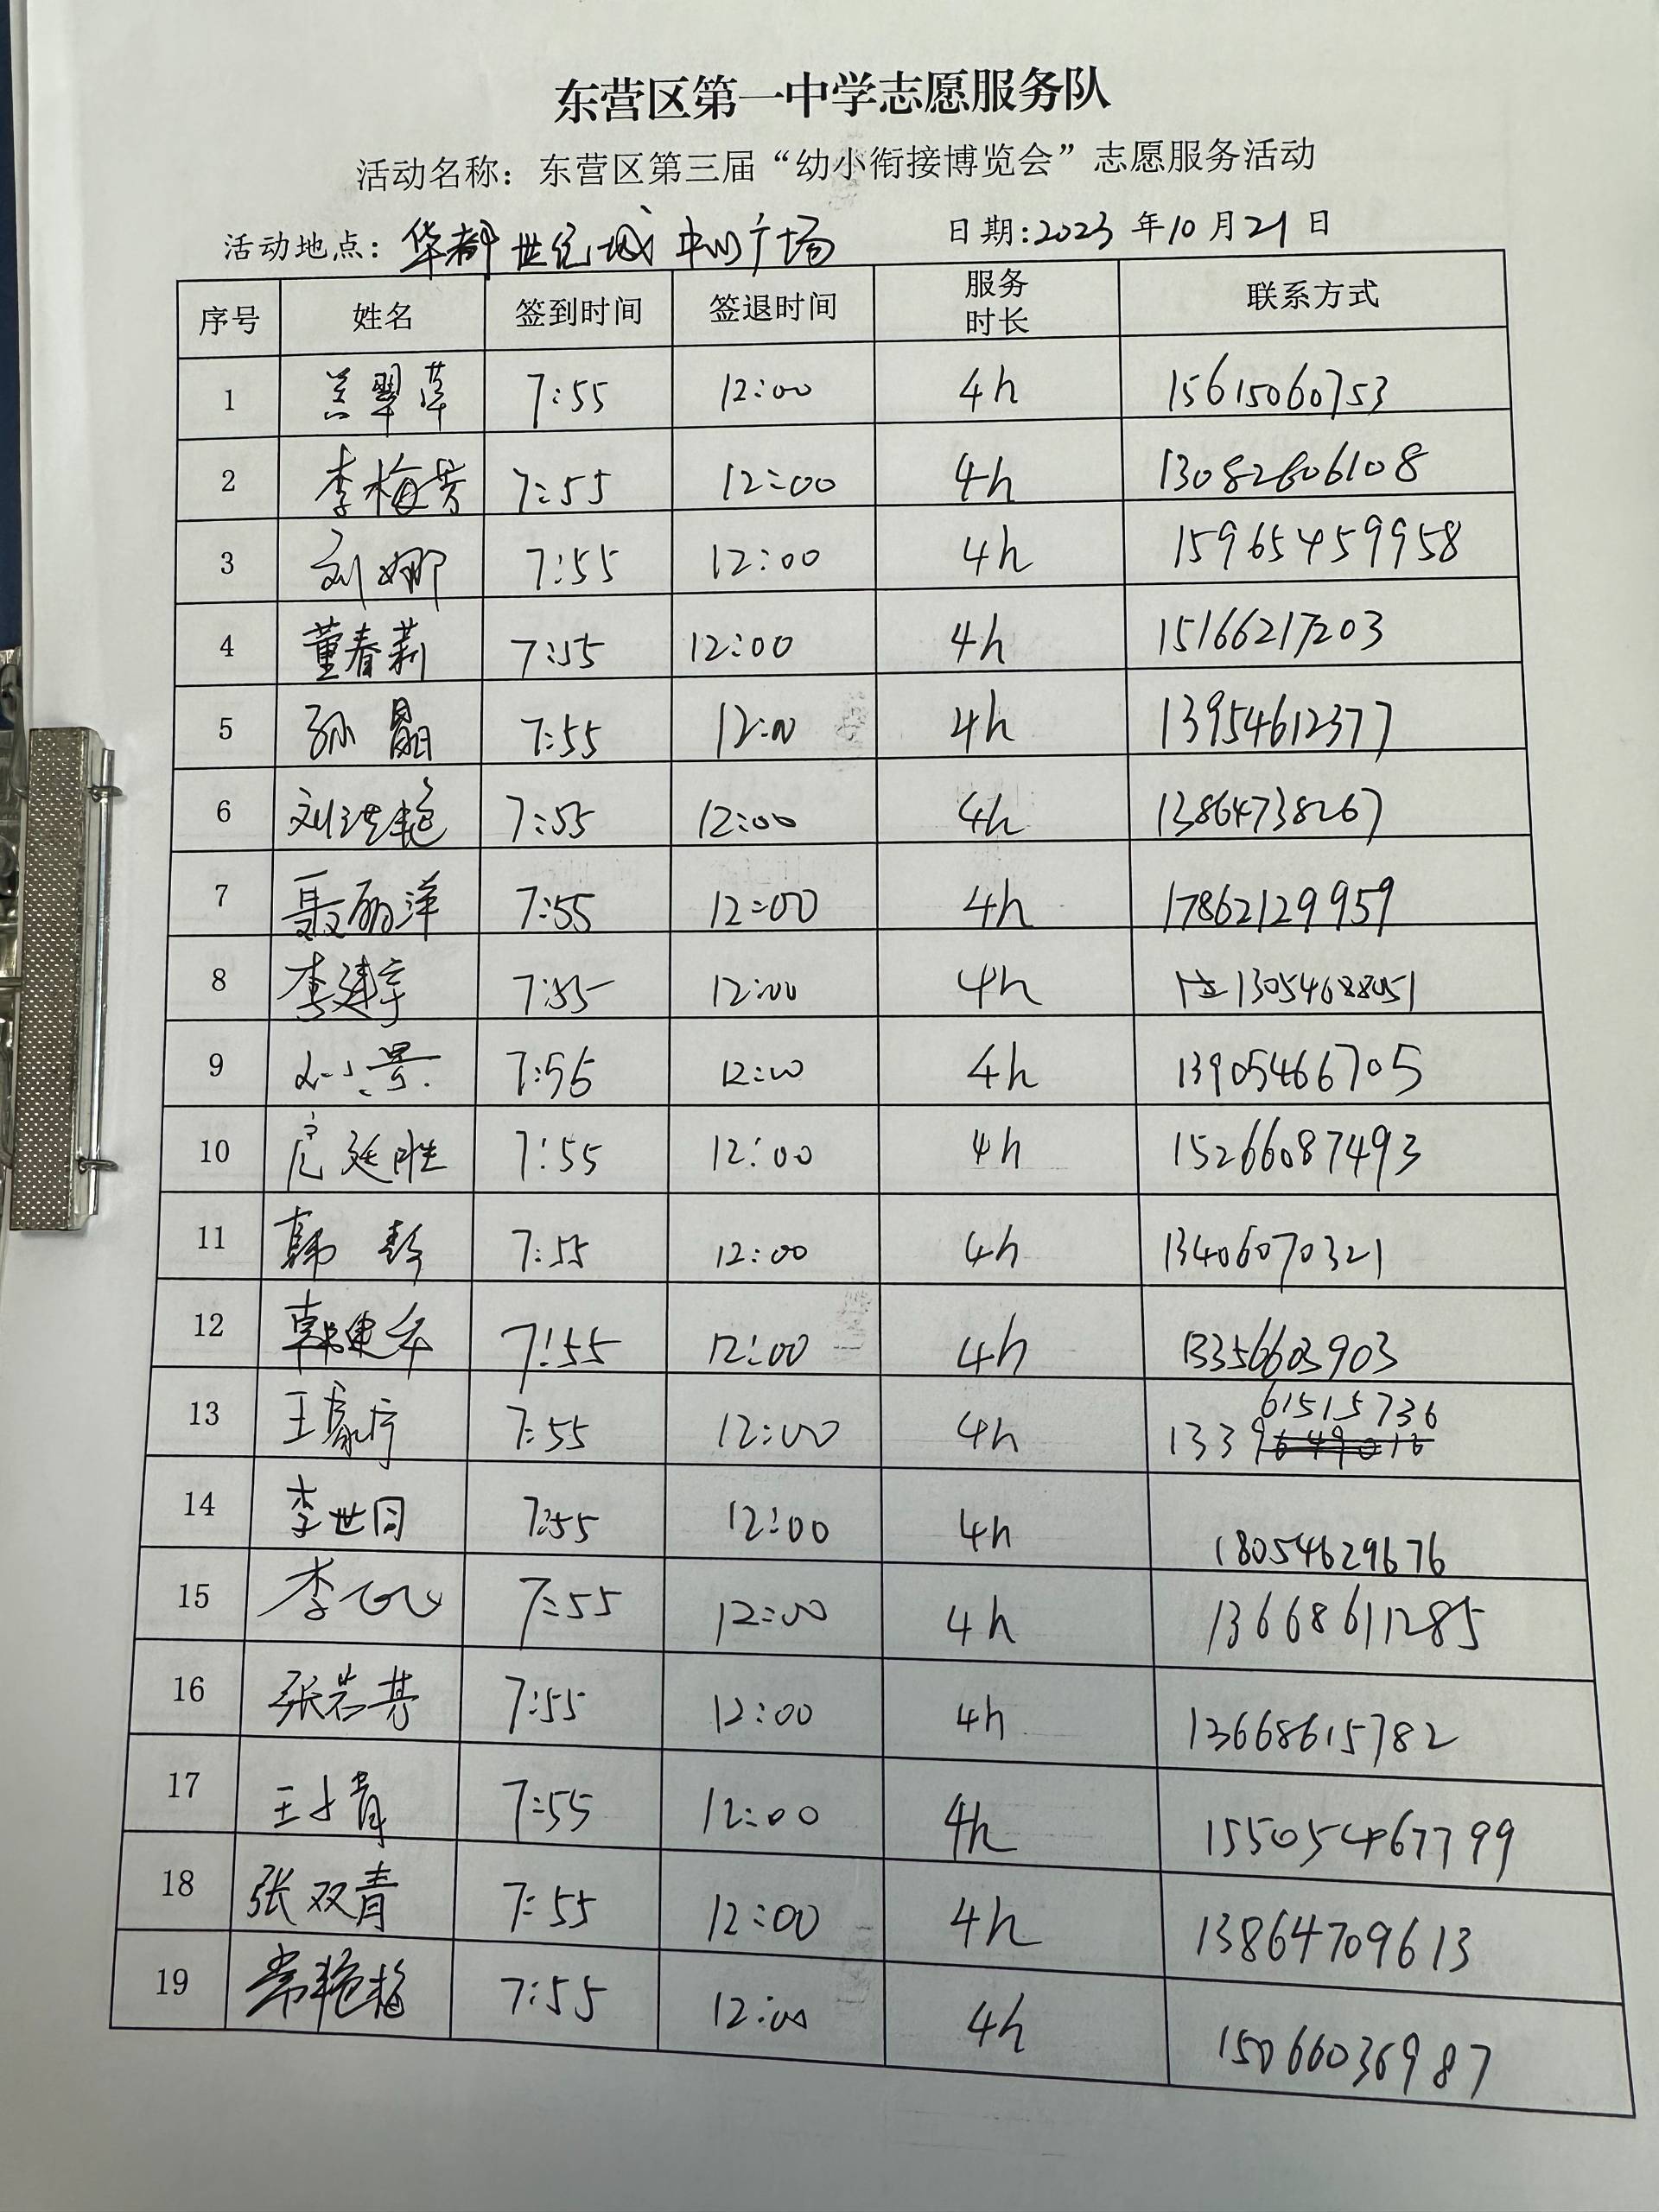 东营区第一中学志愿服务队
活动名称：东营区第三届“幼小衔接博览会”志愿服务活动
活动地点：华都世纪城中心广场 日期：2023年10月21日
序号 姓名 签到时间 签退时间 服务时长 联系方式
1 翠萍 7:55 12:00 4h 15615060753
2 李梅芳 7:55 12:00 4h 13082606108
3 刘娜 7:55 12:00 4h 15965459958
4 董春莉 7:55 12:00 4h 15166217203
5 孙晶 7:55 12:00 4h 13954612377
6 刘洪艳 7:55 12:00 4h 13864738267
7 聂丽洋 7:55 12:00 4h 17862129959
8 李建 7:55 12:00 4h
9 刘小景 7:56 12:00 4h 13905466705
10 廷胜 7:55 12:00 4h 15266087493
11 韩 7:55 12:00 4h 13406070321
12 韩建华 7:55 12:00 4h
13 王 7:55 12:00 4h 133961515736
14 李世同 7:55 12:00 4h 18054629676
15 李 7:55 12:00 4h 13668611285
16 张 7:55 12:00 4h 13668615782
17 王 青 7:55 12:00 4h 15505467799
18 张双青 7:55 12:00 4h 13864709613
19 常艳梅 7:55 12:00 4h 15066036987